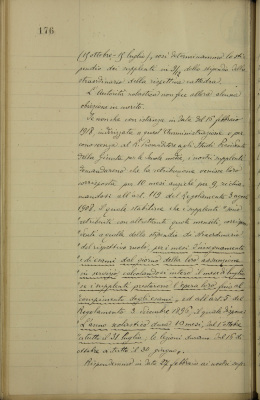 176
(15 ottobre - 15 luglio), così determinammo lo sti-
pendio dei supplenti in 9/12 dello stipendio dello
straordinario della rispettiva cattedra.
L'Autorità scolastica non fece allora alcuna
obiezione in merito.
Se non che con istanza in data del 15 febbraio
1918, indirizzata a quest'Amministrazione e per
conoscenza al R. Provveditore agli Studi Presidente
della Giunta per le Scuole medie, i nostri supplenti
domandarono che la retribuzione venisse loro
corrisposta per 10 mesi anziché per 9, richia-
mandosi all'art. 119 del Regolamento 3 agosto
1908, il quale stabilisce che i supplenti "sono
retribuiti con altrettante quote mensili, corrispon-
denti a quelle dello stipendio da straordinario
del rispettivo ruolo, per i mesi d'insegnamento
e di esami dal giorno della loro assunzione
in servizio, calcolandosi intero il mese di luglio
se i supplenti prestarono l'opera loro fino al
compimento degli esami", ed all'art. 5 del
Regolamento 3 dicembre 1896, il quale dispone:
"L'anno scolastico dura 10 mesi, dal 1° ottobre
a tutto il 31 luglio; le lezioni durano dal 15 di
ottobre a tutto il 30 giugno".
Rispondemmo in data 27 febbraio ai nostri sup-